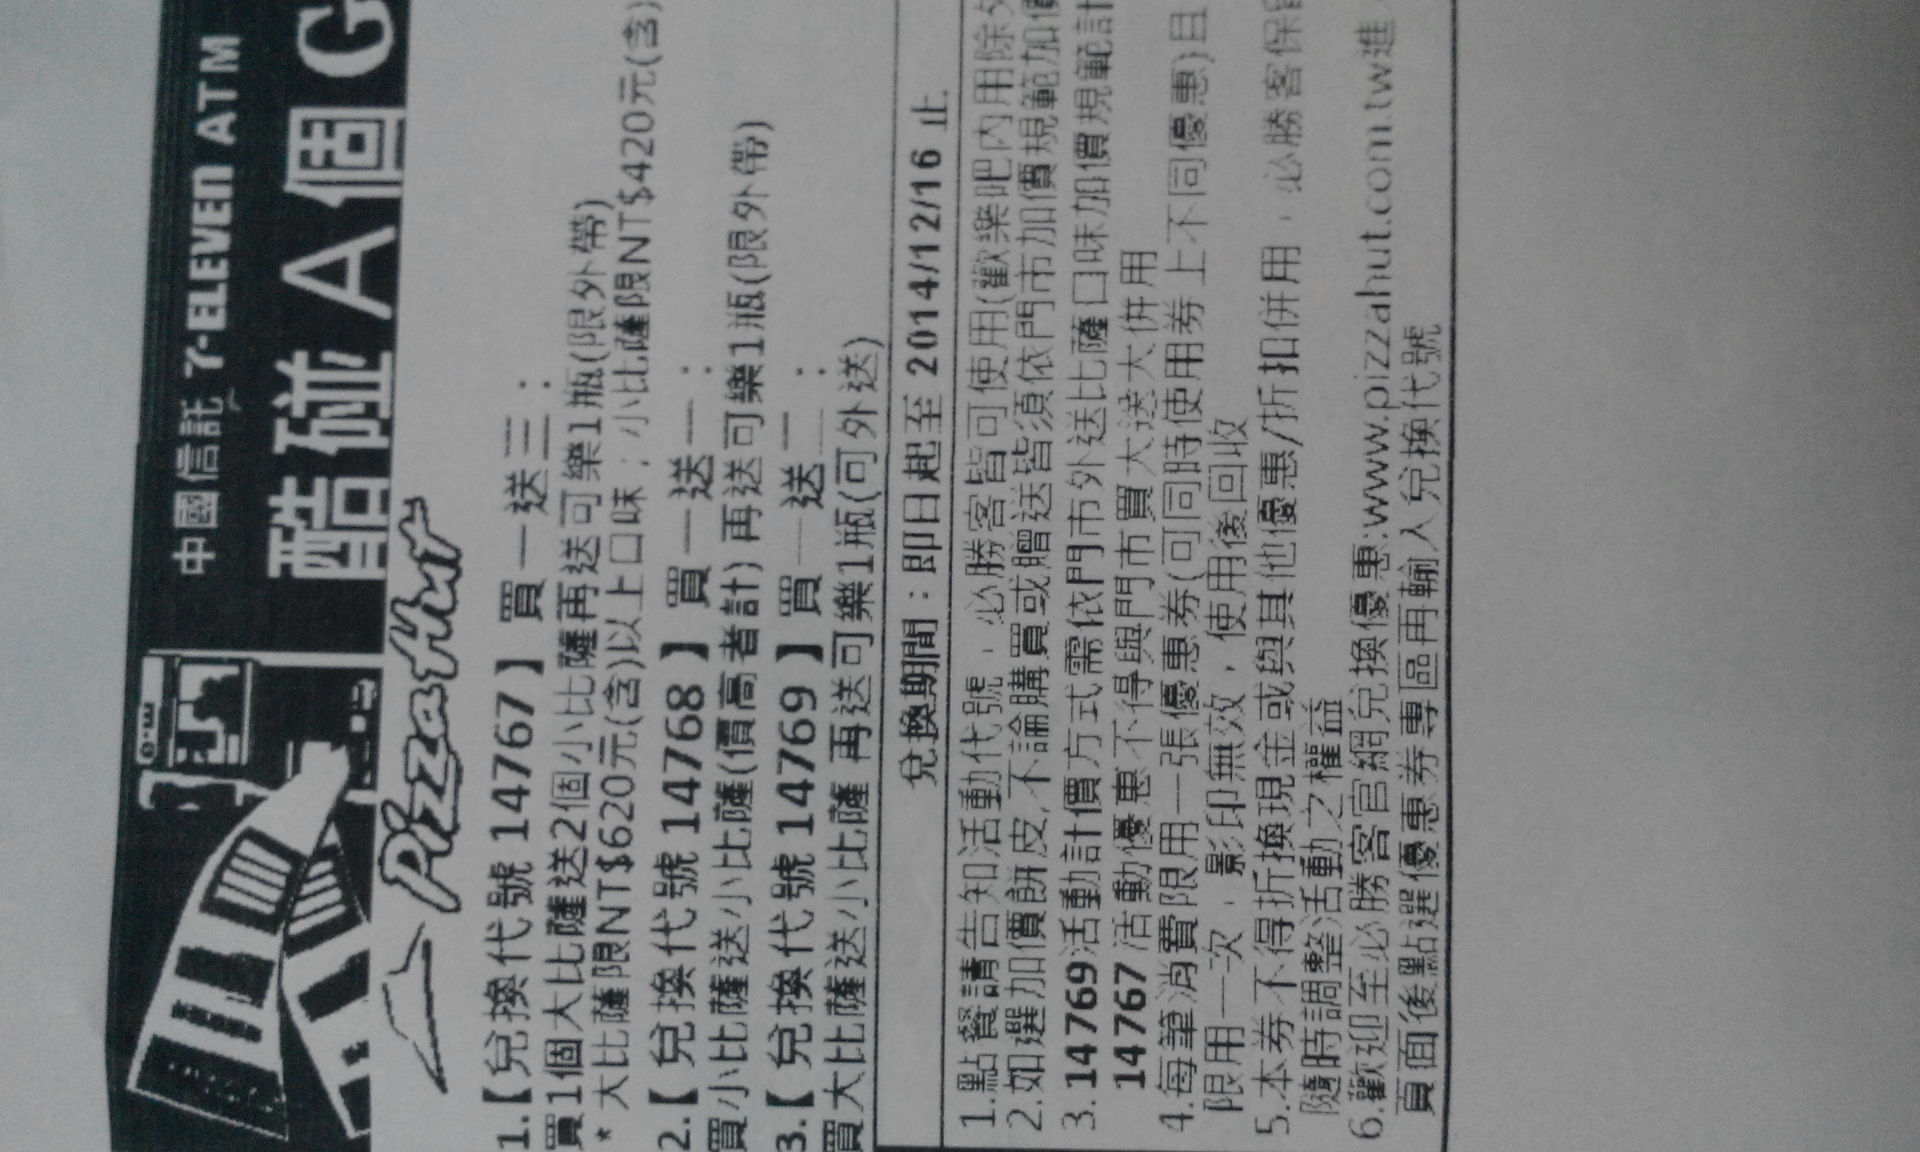 中國信託 7-ELEVEN ATM
酷碰A個G
Pizza Hut
1.【兌換代號 14767】買一送三：
買1個大比薩送2個小比薩再送可樂1瓶(限外帶)
* 大比薩限NT$620元(含)以上口味；小比薩限NT$420元(含)
2.【兌換代號 14768】買一送一：
買小比薩送小比薩(價高者計) 再送可樂1瓶(限外帶)
3.【兌換代號 14769】買一送二：
買大比薩送小比薩 再送可樂1瓶(可外送)
兌換期間：即日起至 2014/12/16 止
1.點餐請告知活動代號，必勝客皆可使用(歡樂吧內用除外
2.如選加價餅皮,不論購買或贈送皆須依門市加價規範加價
3.14769活動計價方式需依門市外送比薩口味加價規範計
14767 活動優惠不得與門市買大送大併用
4.每筆消費限用一張優惠券(可同時使用券上不同優惠)且
限用一次，影印無效，使用後回收
5.本券不得折換現金或與其他優惠/折扣併用，必勝客保留
隨時調整活動之權益
6.歡迎至必勝客官網兌換優惠:www.pizzahut.com.tw進
頁面後點選優惠券專區再輸入兌換代號